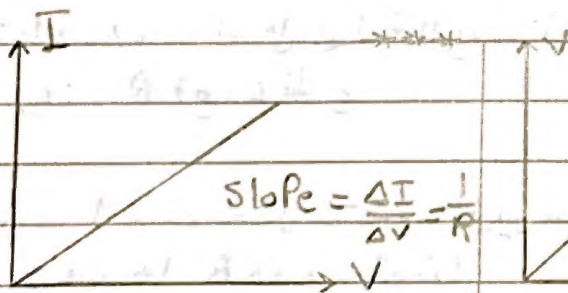 I
***
V
Slope = ΔI/ΔV = 1/R
V